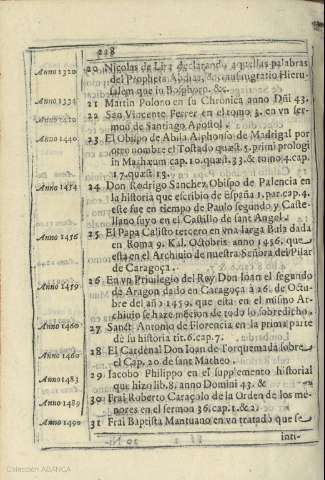 228
Anno 1320 20 Nicolas de Lira declarando aquellas palabras
del Propheta Abdias, & transmigratio Hierusalem
que in Bosphoro. &c.
Anno 1334 21 Martin Polono en su Chronica anno Dñi 43.
Anno 1420 22 San Vincente Ferrer en el tomo 3. en vn sermo
de Santiago Apostol.
Anno 1440 23 El Obispo de Abila Alphonso de Madrigal por
otro nombre el Tostado quæst. 5. primi prologi
in Mathæum cap. 10. quæst. 33. & tomo 4. cap.
17. quæst. 13.
Anno 1454 24 Don Rodrigo Sanchez Obispo de Palencia en
la historia que escribio de España 1. par. cap. 4.
este fue en tiempo de Paulo segundo y Castellano
suyo en el Castillo de sant Angel.
Anno 1456 25 El Papa Calisto tercero en vna larga Bula dada
en Roma 9. Kal. Octobris anno 1456. que
està en el Archiuio de nuestra Señora del Pilar
de Caragoça.
Anno 1459 26 En vn Priuilegio del Rey Don Ioan el segundo
de Aragon dado en Caragoça à 26. de Octubre
del año 1459. que està en el mismo Archiuio
se haze mecion de todo lo sobredicho.
Anno 1460 27 Sanct Antonio de Florencia en la primera parte
de su historia tit. 6. cap. 7.
Anno 1460 28 El Cardenal Don Ioan de Torquemada sobre
el Cap. 20. de sant Matheo.
Anno 1483 29 Iacobo Philippo en el supplemento historial
que hizo lib. 8. anno Domini 43. &
Anno 1489 30 Frai Roberto Caraçolo de la Orden de los menores
en el sermon 36. cap. 1. & 2.
Anno 1490 31 Frai Baptista Mantuano en vn tratado que se
inti-
Colección ABANCA